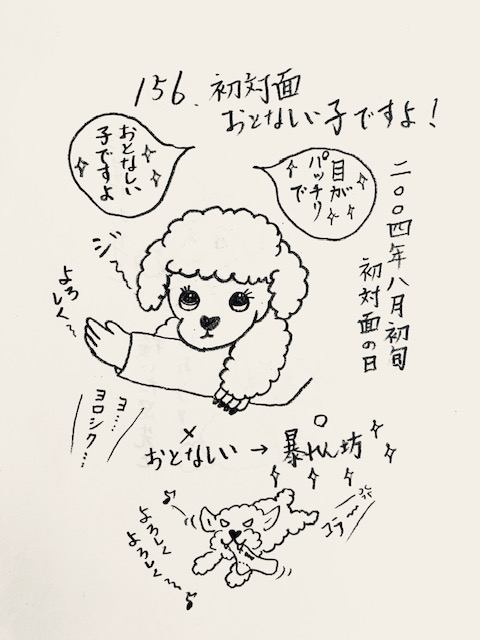 156. 初対面
おとなしい子ですよ！
おとなしい
子ですよ
目が
パッチリ
で
二〇〇四年八月初旬
初対面の日
ジ〜
よろ
しく〜
ヨ…
ヨロシク…
× ○
おとなしい → 暴れん坊
コラ〜
よろしく
よろしく〜